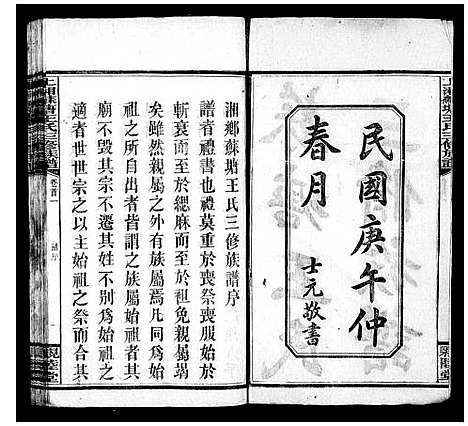 民國庚午仲
春月
士元敬書
上湘蘇塘王氏三修族譜
卷首一
親睦堂
湘鄉蘇塘王氏三修族譜序
譜者禮書也禮莫重於喪祭喪服始於
斬衰而至於緦麻而至於祖免親屬竭
矣雖然親屬之外有族屬焉凡同為始
祖之所自出者皆謂之族屬始祖者其
廟不毀其宗不遷其姓不別為始祖之
適者世世宗之以主始祖之祭而合其